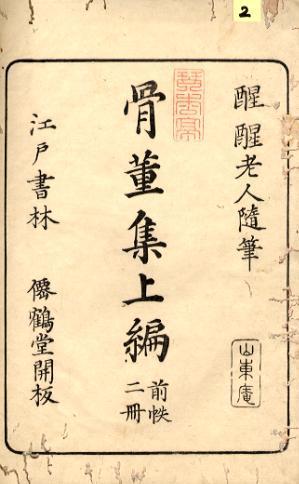 2
醒醒老人隨筆
山東庵
骨董集上編
前帙
二冊
江戸書林
僊鶴堂開板